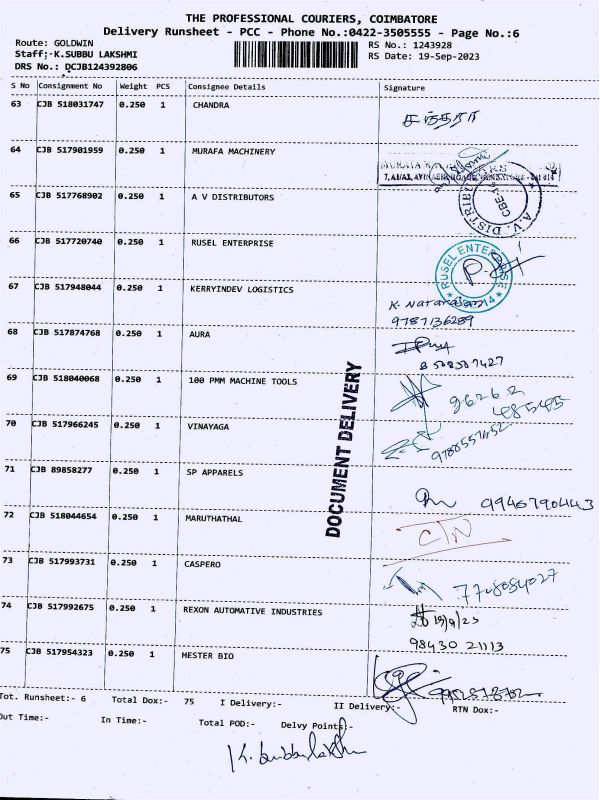 THE PROFESSIONAL COURIERS, COIMBATORE
Delivery Runsheet - PCC - Phone No.:0422-3505555 - Page No.:6
Route: GOLDWIN RS No.: 1243928
Staff:-K.SUBBU LAKSHMI RS Date: 19-Sep-2023
DRS No.: DCJB124392806
S No Consignment No Weight PCS Consignee Details Signature
63 CJB 518031747 0.250 1 CHANDRA சந்திரா
64 CJB 517901959 0.250 1 MURAFA MACHINERY
65 CJB 517768902 0.250 1 A V DISTRIBUTORS A.V. DISTRIBUTORS
66 CJB 517720740 0.250 1 RUSEL ENTERPRISE RUSEL ENTERPRISE
67 CJB 517948044 0.250 1 KERRYINDEV LOGISTICS K. Natarajan
9787136289
68 CJB 517874768 0.250 1 AURA
8508507427
69 CJB 518040068 0.250 1 100 PMM MACHINE TOOLS 96262
48545
70 CJB 517966245 0.250 1 VINAYAGA
71 CJB 89858277 0.250 1 SP APPARELS 9946790443
72 CJB 518044654 0.250 1 MARUTHATHAL
73 CJB 517993731 0.250 1 CASPERO 7708084027
74 CJB 517992675 0.250 1 REXON AUTOMATIVE INDUSTRIES 19/9/23
98430 21113
75 CJB 517954323 0.250 1 HESTER BIO
DOCUMENT DELIVERY
Tot. Runsheet:- 6 Total Dox:- 75 I Delivery:- II Delivery:- RTN Dox:-
Out Time:- In Time:- Total POD:- Delvy Points:-
K. Subbulakshmi